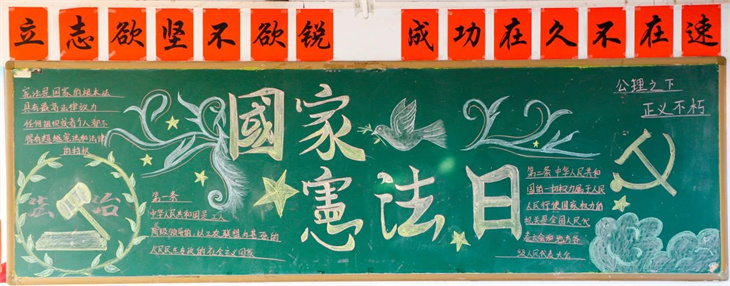 立志欲坚不欲锐
成功在久不在速
宪法是国家的根本法
具有最高法律效力
任何组织或者个人都不
得有超越宪法和法律
的特权
國家
憲法日
公理之下
正义不朽
法治
第一条
中华人民共和国是工人
阶级领导的，以工农联盟为基础的
人民民主专政的社会主义国家
第二条 中华人民共和
国的一切权力属于人民
人民行使国家权力的
机关是全国人民代
表大会和地方各
级人民代表大会